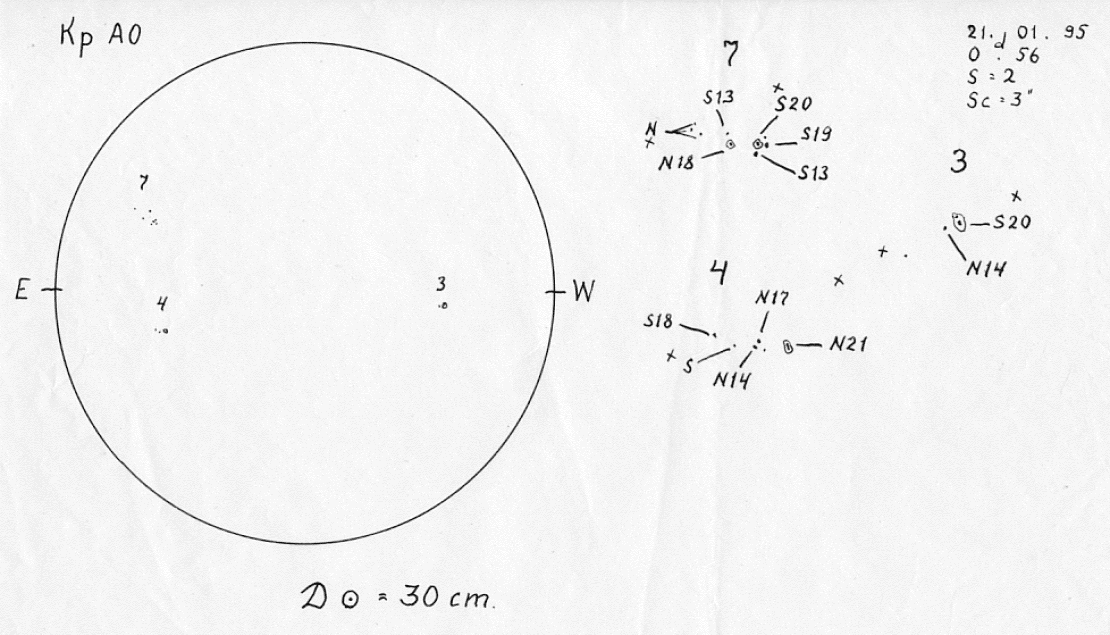 Кр АО
21. 01. 95
0 d. 56
S = 2
Sc = 3"
7
S13
× S20
N ×
S19
N18
S13
3
×
S20
N14
7
E
W
3
4
+
×
4
N17
S18
× S
N21
N14
D ⊙ = 30 cm.